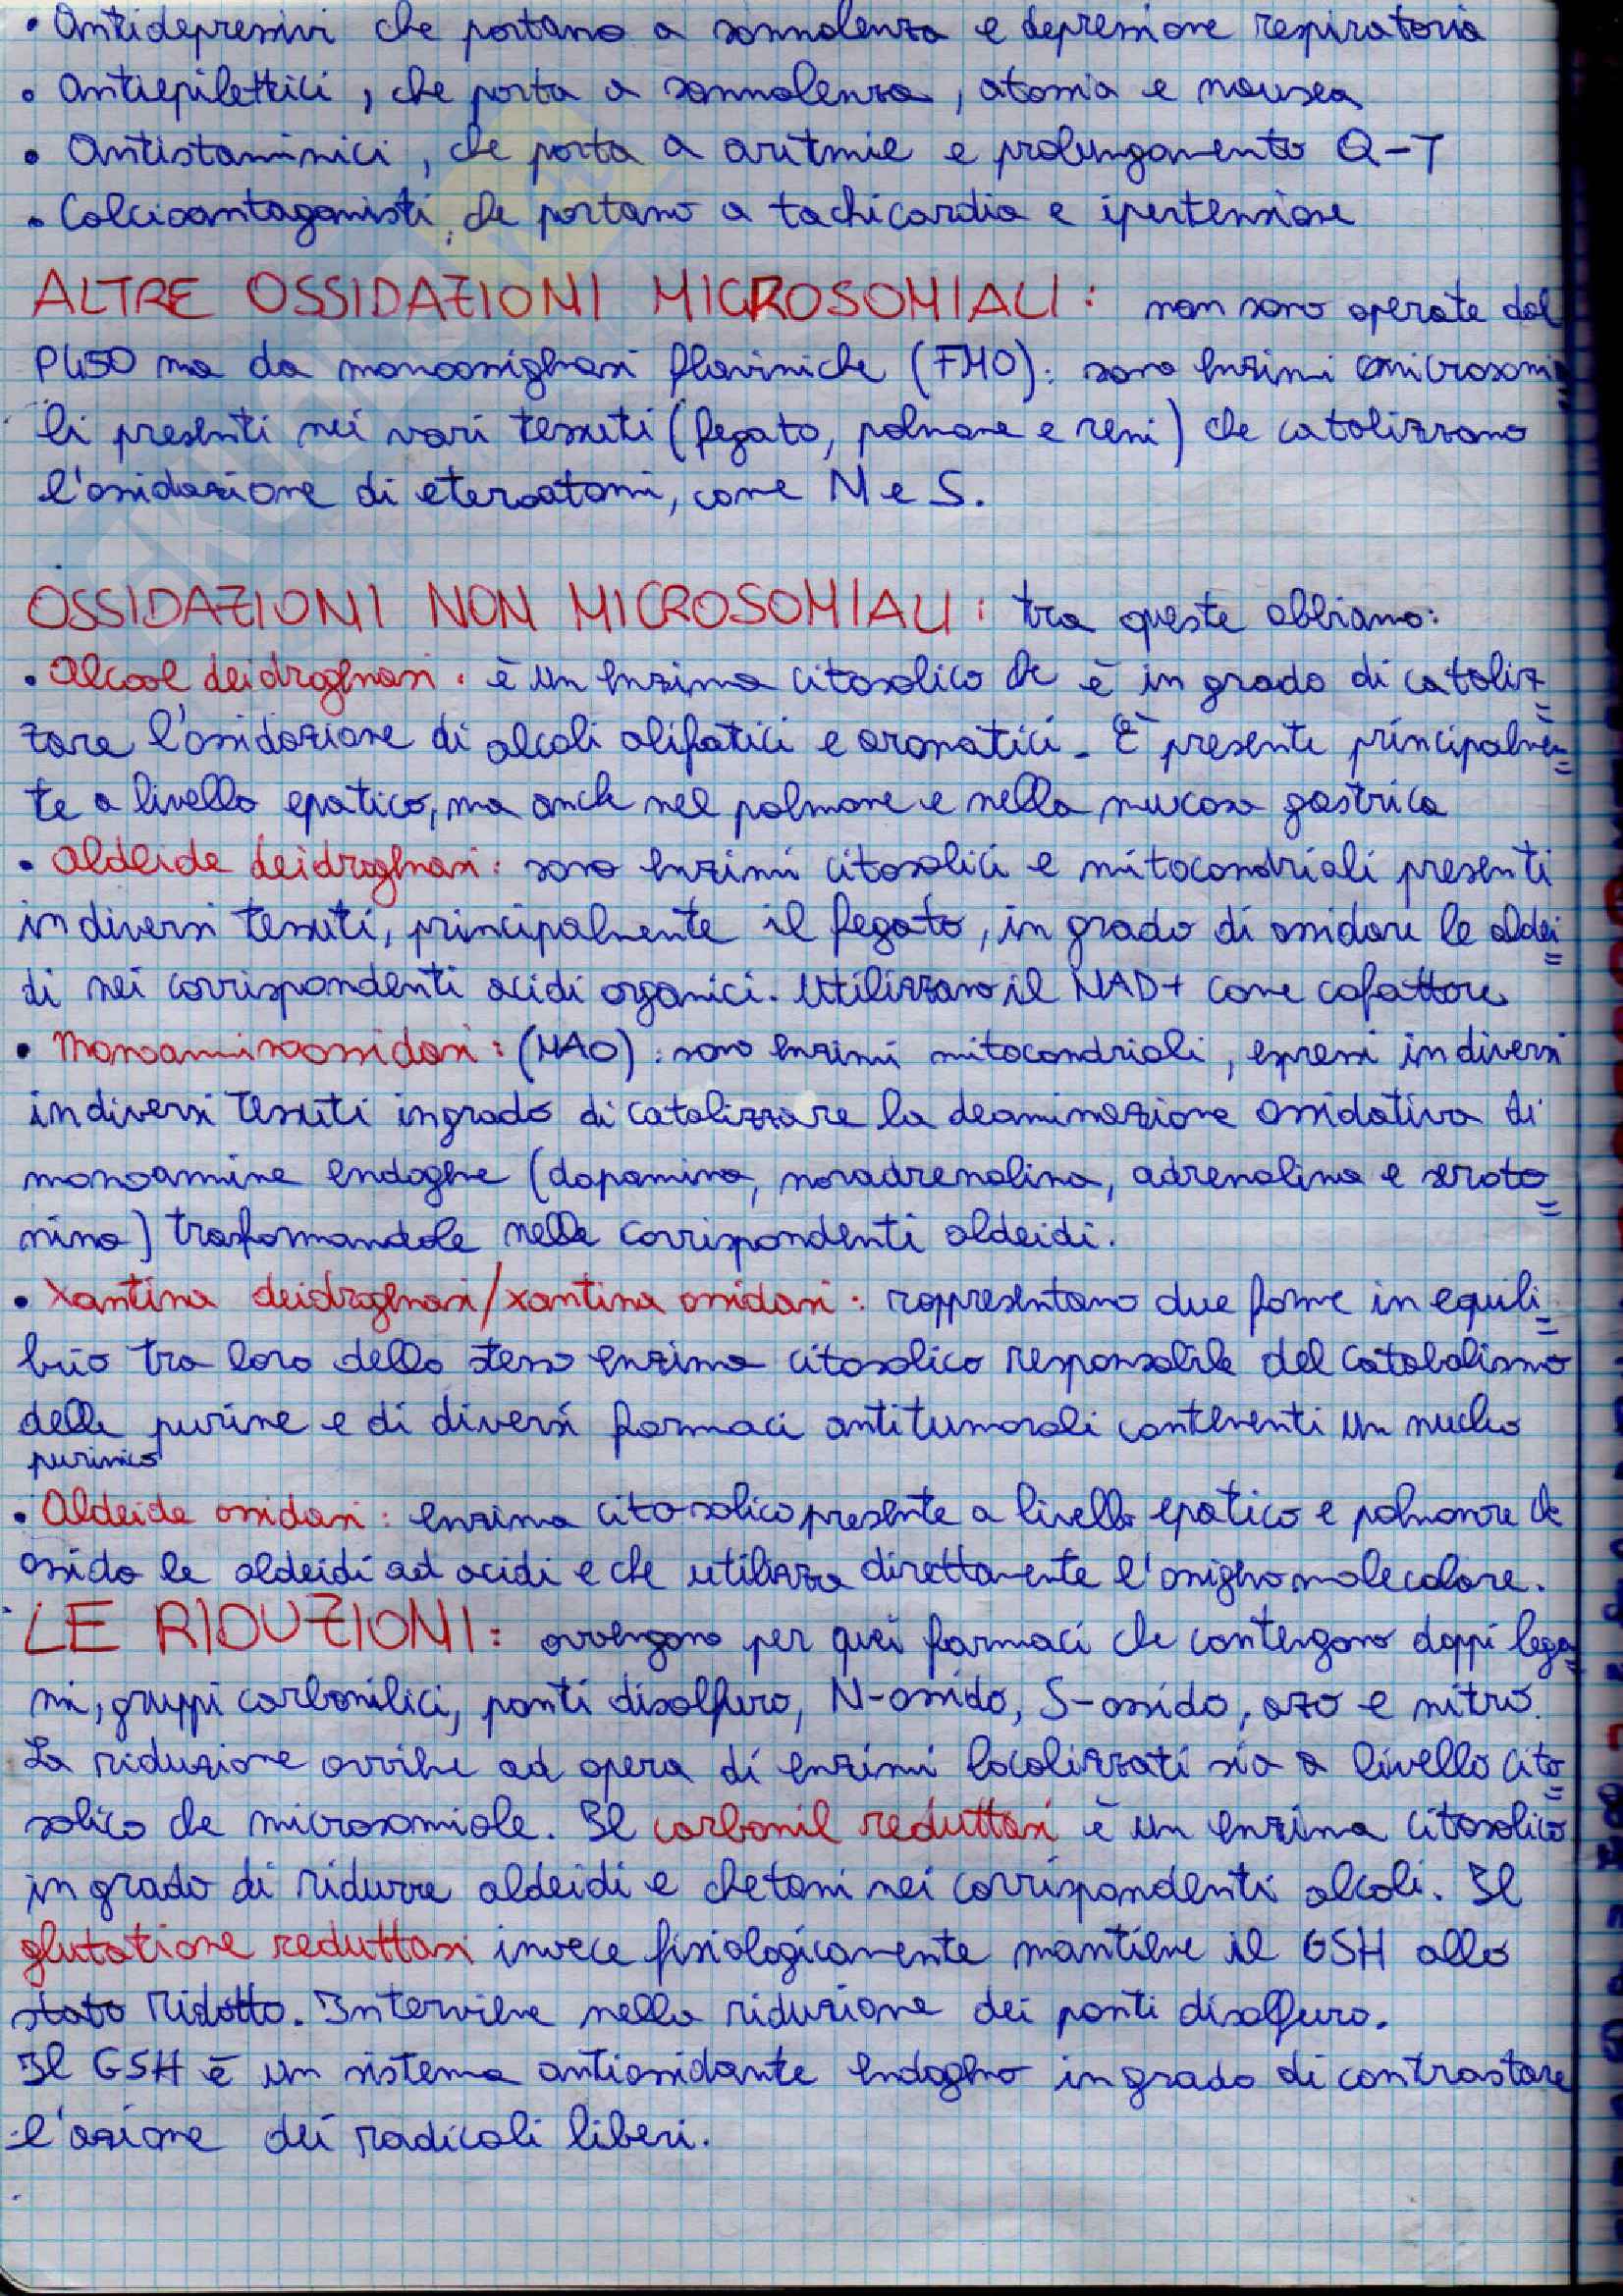 • Antidepressivi che portano a sonnolenza e depressione respiratoria
• Antiepilettici, che porta a sonnolenza, atassia e nausea
• Antistaminici, che porta a aritmie e prolungamento Q-T
• Calcioantagonisti, che portano a tachicardia e ipertensione
ALTRE OSSIDAZIONI MICROSOMIALI: non sono operate dal
P450 ma da monoossigenasi flaviniche (FMO): sono enzimi microsomia
li presenti nei vari tessuti (fegato, polmone e reni) che catalizzano
l'ossidazione di eteroatomi, come N e S.
OSSIDAZIONI NON MICROSOMIALI: tra queste abbiamo:
• Alcool deidrogenasi: è un enzima citosolico che è in grado di cataliz=
zare l'ossidazione di alcoli alifatici e aromatici. È presente principalmen=
te a livello epatico, ma anche nel polmone e nella mucosa gastrica
• Aldeide deidrogenasi: sono enzimi citosolici e mitocondriali presenti
in diversi tessuti, principalmente il fegato, in grado di ossidare le aldei=
di nei corrispondenti acidi organici. Utilizzano il NAD+ come cofattore
• Monoaminoossidasi: (MAO): sono enzimi mitocondriali, espressi in diversi
in diversi tessuti in grado di catalizzare la deaminazione ossidativa di
monoamine endogene (dopamina, noradrenalina, adrenalina e seroto=
nina) trasformandole nelle corrispondenti aldeidi.
• Xantina deidrogenasi/xantina ossidasi: rappresentano due forme in equili=
brio tra loro dello stesso enzima citosolico responsabile del catabolismo
delle purine e di diversi farmaci antitumorali contenenti un nucleo
purinico
• Aldeide ossidasi: enzima citosolico presente a livello epatico e polmonare che
ossida le aldeidi ad acidi e che utilizza direttamente l'ossigeno molecolare.
LE RIDUZIONI: avvengono per quei farmaci che contengono doppi lega=
mi, gruppi carbonilici, ponti disolfuro, N-ossido, S-ossido, azo e nitro.
La riduzione avviene ad opera di enzimi localizzati sia a livello cito=
solico che microsomiale. Il carbonil reduttasi è un enzima citosolico
in grado di ridurre aldeidi e chetoni nei corrispondenti alcoli. Il
glutatione reduttasi invece fisiologicamente mantiene il GSH allo
stato ridotto. Interviene nella riduzione dei ponti disolfuro.
Il GSH è un sistema antiossidante endogeno in grado di contrastare
l'azione dei radicali liberi.